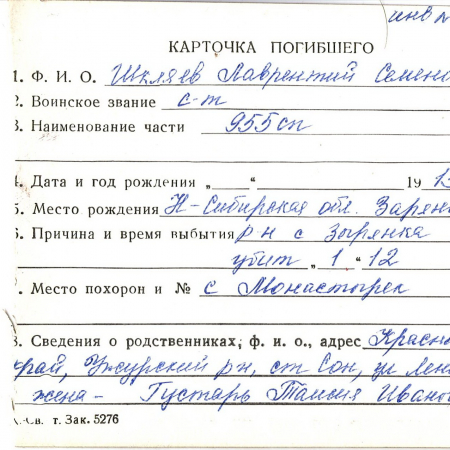 инв №
КАРТОЧКА ПОГИБШЕГО
1. Ф. И. О. Шкляев Лаврентий Семено
2. Воинское звание с-т
3. Наименование части 955 сп
4. Дата и год рождения „ “ 19 13
5. Место рождения Н-Сибирская обл. Зарян
6. Причина и время выбытия р н с Зырянка
убит „ 1 “ 12
7. Место похорон и № с Монастырек
8. Сведения о родственниках, ф. и. о., адрес Красно
край, Ужурский р н, ст Сон, ул Лен
жена - Густарь Таисия Иванов
т. Зак. 5276